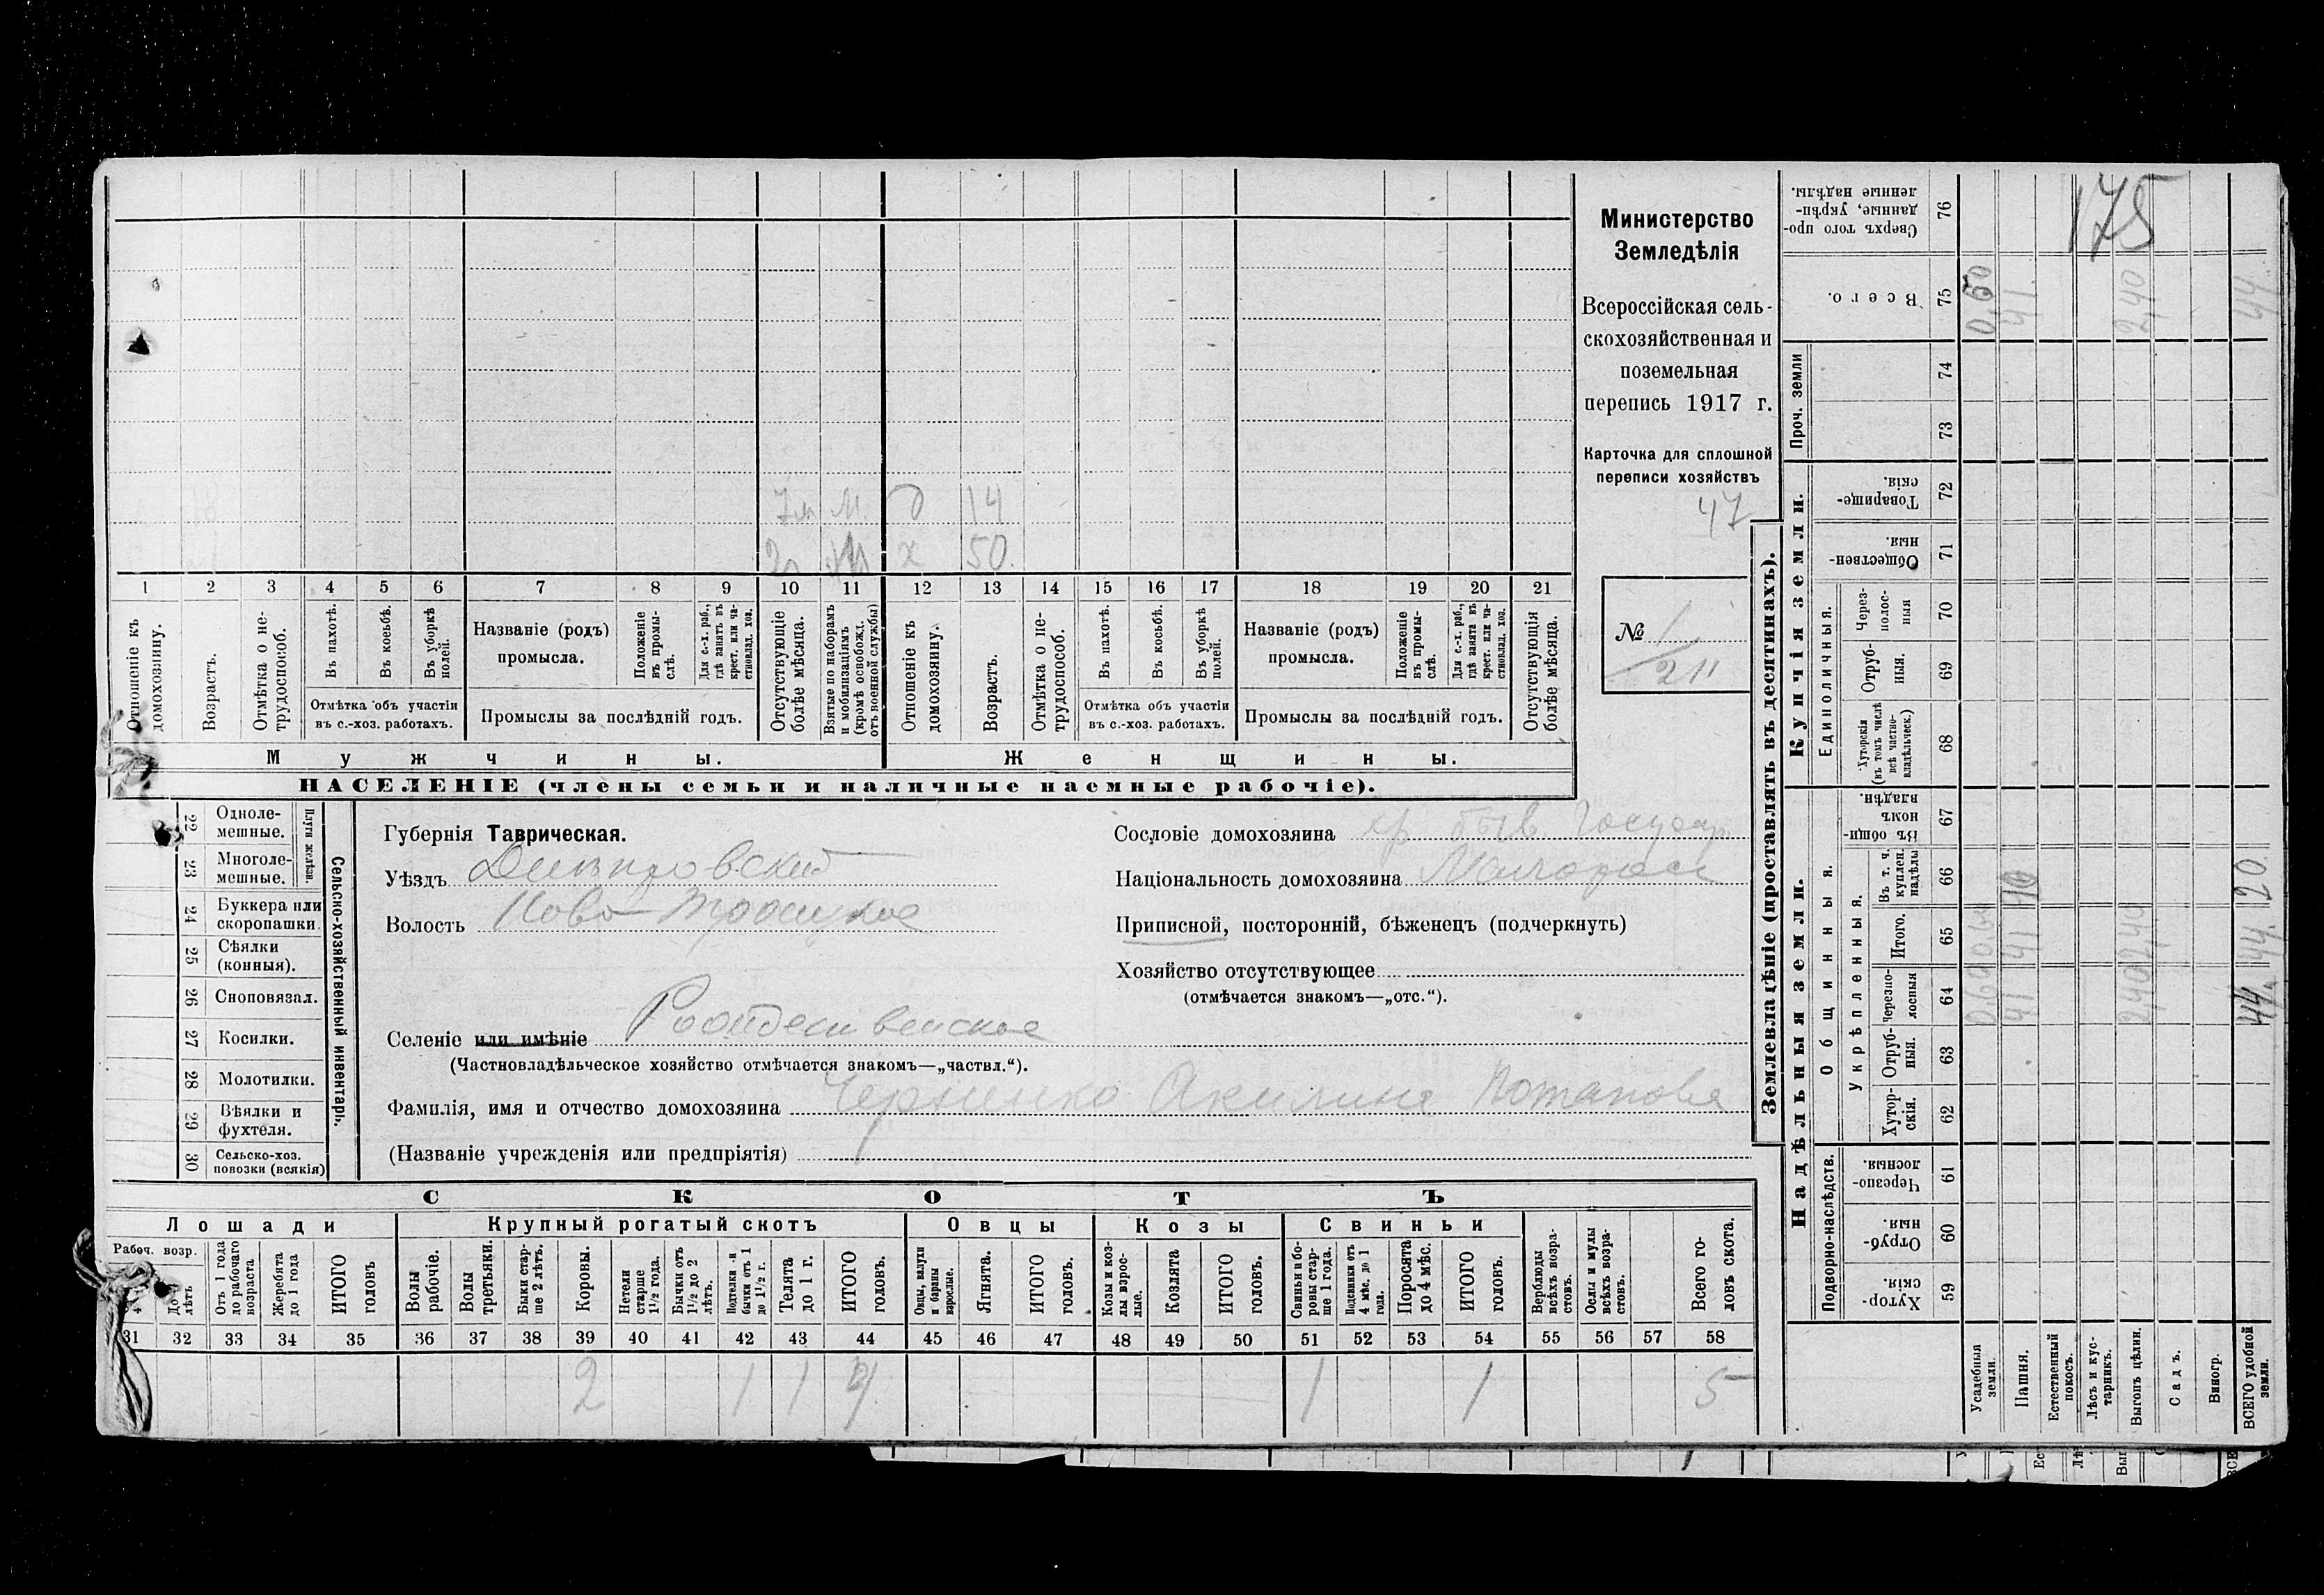 7 м. М. д 14
2 м х 50.
1 2 3 4 5 6 7 8 9 10 11 12 13 14 15 16 17 18 19 20 21
Отношеніе къ домохозяину.
Возрастъ.
Отмѣтка о не-трудоспособ.
Въ пахотѣ.
Въ косьбѣ.
Въ уборкѣ полей.
Отмѣтка объ участіи
въ с.-хоз. работахъ.
Названіе (родъ)
промысла.
Положеніе въ промы-слѣ.
Для с.-х. раб., гдѣ занятъ въ крест. или ча-стновлад. хоз.
Промыслы за послѣдній годъ.
Отсутствующіе болѣе мѣсяца.
Взятые по наборамъ и мобилизаціямъ (кромѣ освобожд. отъ военной службы)
Отношеніе къ домохозяину.
Возрастъ.
Отмѣтка о не-трудоспособ.
Въ пахотѣ.
Въ косьбѣ.
Въ уборкѣ полей.
Отмѣтка объ участіи
въ с.-хоз. работахъ.
Названіе (родъ)
промысла.
Положеніе въ промы-слѣ.
Для с.-х. раб., гдѣ занята въ крест. или ча-стновлад. хоз.
Промыслы за послѣдній годъ.
Отсутствующія болѣе мѣсяца.
Мужчины. Женщины.
НАСЕЛЕНІЕ (члены семьи и наличные наемные рабочіе).
Министерство
Земледѣлія
Всероссійская сель-
скохозяйственная и
поземельная
перепись 1917 г.
Карточка для сплошной
переписи хозяйствъ
47
№ 1
211
Сельско-хозяйственный инвентарь.
Плуги желѣзн.
22 Одноле-
мешные.
23 Многоле-
мешные.
24 Буккера или
скоропашки.
25 Сѣялки
(конныя).
26 Сноповязал.
27 Косилки.
28 Молотилки.
29 Вѣялки и
фухтеля.
30 Сельско-хоз.
повозки (всякія)
Губернія Таврическая.
Уѣздъ Днѣпровскій
Волость Ново-Троицкое
Селеніе или имѣніе Рождественское
(Частновладѣльческое хозяйство отмѣчается знакомъ—„частвл.“).
Фамилія, имя и отчество домохозяина Черненко Акилина Потапова
(Названіе учрежденія или предпріятія)
Сословіе домохозяина кр. быв. Госуд.
Національность домохозяина Малоросс
Приписной, посторонній, бѣженецъ (подчеркнуть)
Хозяйство отсутствующее
(отмѣчается знакомъ—„отс.“).
СКОТЪ
Лошади Крупный рогатый скотъ Овцы Козы Свиньи
Рабоч. возр.
До лѣтъ
Отъ 1 года до рабочаго возраста
Жеребята до 1 года
ИТОГО головъ
Волы рабочіе.
Волы третьяки.
Быки стар-ше 2 лѣтъ.
Коровы.
Нетели старше 1½ года.
Бычки отъ 1½ до 2 лѣтъ.
Подтелки и бычки отъ 1 до 1½ г.
Телята до 1 г.
ИТОГО головъ.
Овцы, валухи и бараны взрослые.
Ягнята.
ИТОГО головъ.
Козы и коз-лы взрос-лые.
Козлята
ИТОГО головъ.
Свиньи и бо-ровы стар-ше 1 года.
Подсвинки отъ 4 мѣс. до 1 года.
Поросята до 4 мѣс.
ИТОГО головъ.
Верблюды всѣхъ возра-стовъ.
Ослы и мулы всѣхъ возра-стовъ.
Всего го-ловъ скота.
31 32 33 34 35 36 37 38 39 40 41 42 43 44 45 46 47 48 49 50 51 52 53 54 55 56 57 58
2 1 1 4 1 1 5
Землевладѣніе (проставлять въ десятинахъ).
Надѣльныя земли. Купчія земли. Проч. земли
Подворно-наслѣдств.
Общинныя.
Укрѣпленныя.
Единоличныя.
Сверхъ того про-данные, укрѣп-ленные надѣлы. 76
Всего. 75
74
73
Товарище-скія. 72
Обществен-ныя. 71
Через-полос-ныя 70
Отруб-ныя. 69
Хуторскія (въ томъ числѣ всѣ частно-владѣльческ.) 68
Въ общин-номъ владѣн. 67
Въ т. ч. куплен. надѣлы 66
Итого. 65
Черезпо-лосныя 64
Отруб-ныя. 63
Хутор-скія. 62
Черезпо-лосныя. 61
Отруб-ныя. 60
Хутор-скія. 59
175
0,60 41 2,40 44
10 20
0,60 41 2,40 44
0,60 41 2,40 44
Усадебныя земли.
Пашня.
Естественный покосъ.
Лѣсъ и кус-тарникъ.
Выгонъ цѣлин.
Садъ.
Виногр.
ВСЕГО удобной земли.